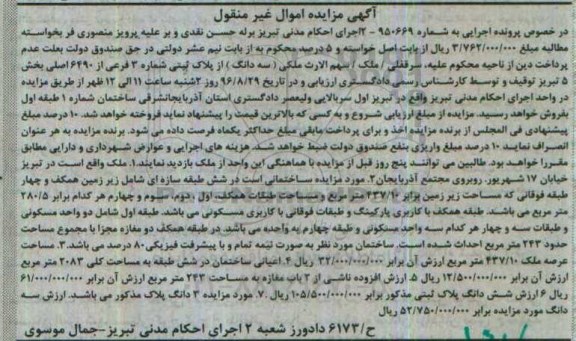 آگهی مزایده اموال غیر منقول
در خصوص پرونده اجرایی به شماره ۹۵۰۶۶۹ - ۲اجرای احکام مدنی تبریز برله حسن نقدی و بر علیه پرویز منصوری فر بخواسته
مطالبه مبلغ ۳/۷۶۲/۰۰۰/۰۰۰ ریال از بابت اصل خواسته و ۵ درصد محکوم به از بابت نیم عشر دولتی در حق صندوق دولت بعلت عدم
پرداخت دین از ناحیه محکوم علیه، سرقفلی / ملک / سهم الارث ملکی ( سه دانگ ) از پلاک ثبتی شماره ۳ فرعی از ۶۴۹۰ اصلی بخش
۵ تبریز توقیف و توسط کارشناس رسمی دادگستری ارزیابی و در تاریخ ۹۶/۸/۲۹ روز ۲شنبه ساعت ۱۱ الی ۱۲ ظهر از طریق مزایده
در واحد اجرای احکام مدنی تبریز واقع در تبریز اول سربالایی ولیعصر دادگستری استان آذربایجانشرقی ساختمان شماره ۱ طبقه اول
بفروش خواهد رسید. مزایده از مبلغ ارزیابی شروع و به کسی که بالاترین قیمت را پیشنهاد نماید فروخته خواهد شد. ۱۰ درصد مبلغ
پیشنهادی فی المجلس از برنده مزایده اخذ و برای پرداخت مابقی مبلغ حداکثر یکماه فرصت داده می شود. برنده مزایده به هر عنوان
انصراف نمایند ۱۰ درصد مبلغ واریزی بنفع صندوق دولت ضبط خواهد شد. هزینه های اجرایی و عوارض شهرداری و دارایی مطابق
مقررا خواهد بود. طالبین می توانند پنج روز قبل از مزایده با هماهنگی این واحد از ملک بازدید نمایند.۱. ملک واقع است در تبریز
خیابان ۱۷ شهریور. روبروی مجتمع آذربایجان۲. مورد مزایده ساختمانی است در شش طبقه سازه ای شامل زیر زمین همکف و چهار
طبقه فوقانی که مساحت زیر زمین برابر ۴۳۷/۱۰ متر مربع و مساحت طبقات همکف، اول ، دوم، سوم و چهارم هر کدام برابر ۲۸۰/۵
متر مربع می باشند. طبقه همکف با کاربری پارکینگ و طبقات فوقانی با کاربری مسکونی می باشد. طبقه اول شامل دو واحد مسکونی
و طبقات سه و چهار هر کدام سه واحد مسکونی و طبقه چهارم یه واحده می باشد. در طبقه همکف دو مغازه مجزا با مجموع مساحت
حدود ۲۴۳ متر مربع احداث شده است. ساختمان مورد نظر به صورت نیمه تمام و با پیشرفت فیزیکی ۸۰ درصد می باشد. ۳. مساحت
عرصه ملک ۴۳۷/۱۰ متر مربع ارزش آن برابر ۳۲/۰۰۰/۰۰۰/۰۰۰ ریال ۴. اعیانی ساختمان در شش طبقه به مساحت کلی ۲۰۸۳ متر مربع
ارزش آن برابر ۱۲/۵۰۰/۰۰۰/۰۰۰ ریال ۵. ارزش افزوده ناشی از ۲ باب مغازه به مساحت ۲۴۳ متر مربع ارزش آن برابر ۶۱/۰۰۰/۰۰۰
ریال ۶ ارزش شش دانگ پلاک ثبتی مذکور برابر ۱۰۵/۵۰۰/۰۰۰/۰۰۰ ریال .۷. مورد مزایده ۳ دانگ پلاک مذکور می باشد. ارزش سه
دانگ مورد مزایده برابر ۵۲/۷۵۰/۰۰۰/۰۰۰ ریال
ح/۶۱۷۳ دادورز شعبه ۲ اجرای احکام مدنی تبریز-جمال موسوی